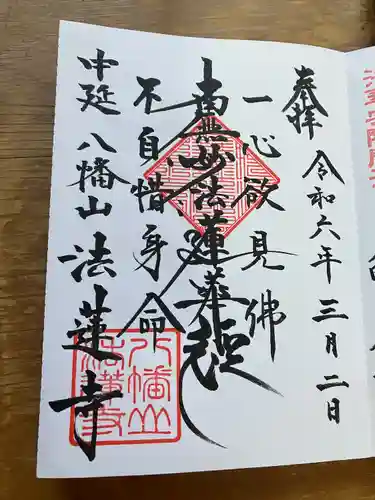 奉拝
令和六年三月二日
一心欲見佛
南無妙法蓮華経
不自惜身命
中延 八幡山 法蓮寺
八幡山
法蓮寺